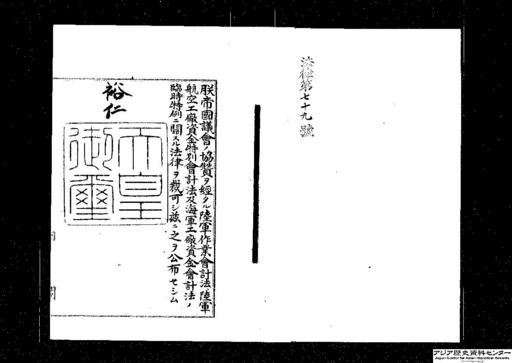 法律第七十九號
朕帝國議會ノ協贊ヲ經タル陸軍作業會計法、陸軍
航空工廠資金特別會計法及海軍工廠資金會計法ノ
臨時特例ニ關スル法律ヲ裁可シ玆ニ之ヲ公布セシム
裕仁
天皇
御璽
アジア歴史資料センター
Japan Center for Asian Historical Records